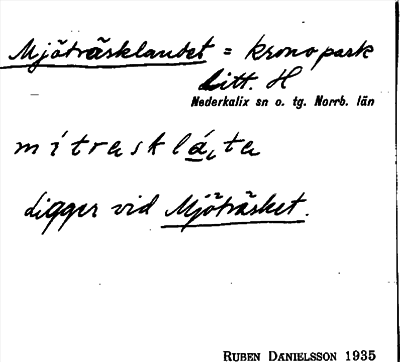 Mjöträsklandet = kronopark
Litt. H
Nederkalix sn o. tg. Norrb. län
mítrasklá,ta
Ligger vid Mjöträsket.
RUBEN DANIELSSON 1935